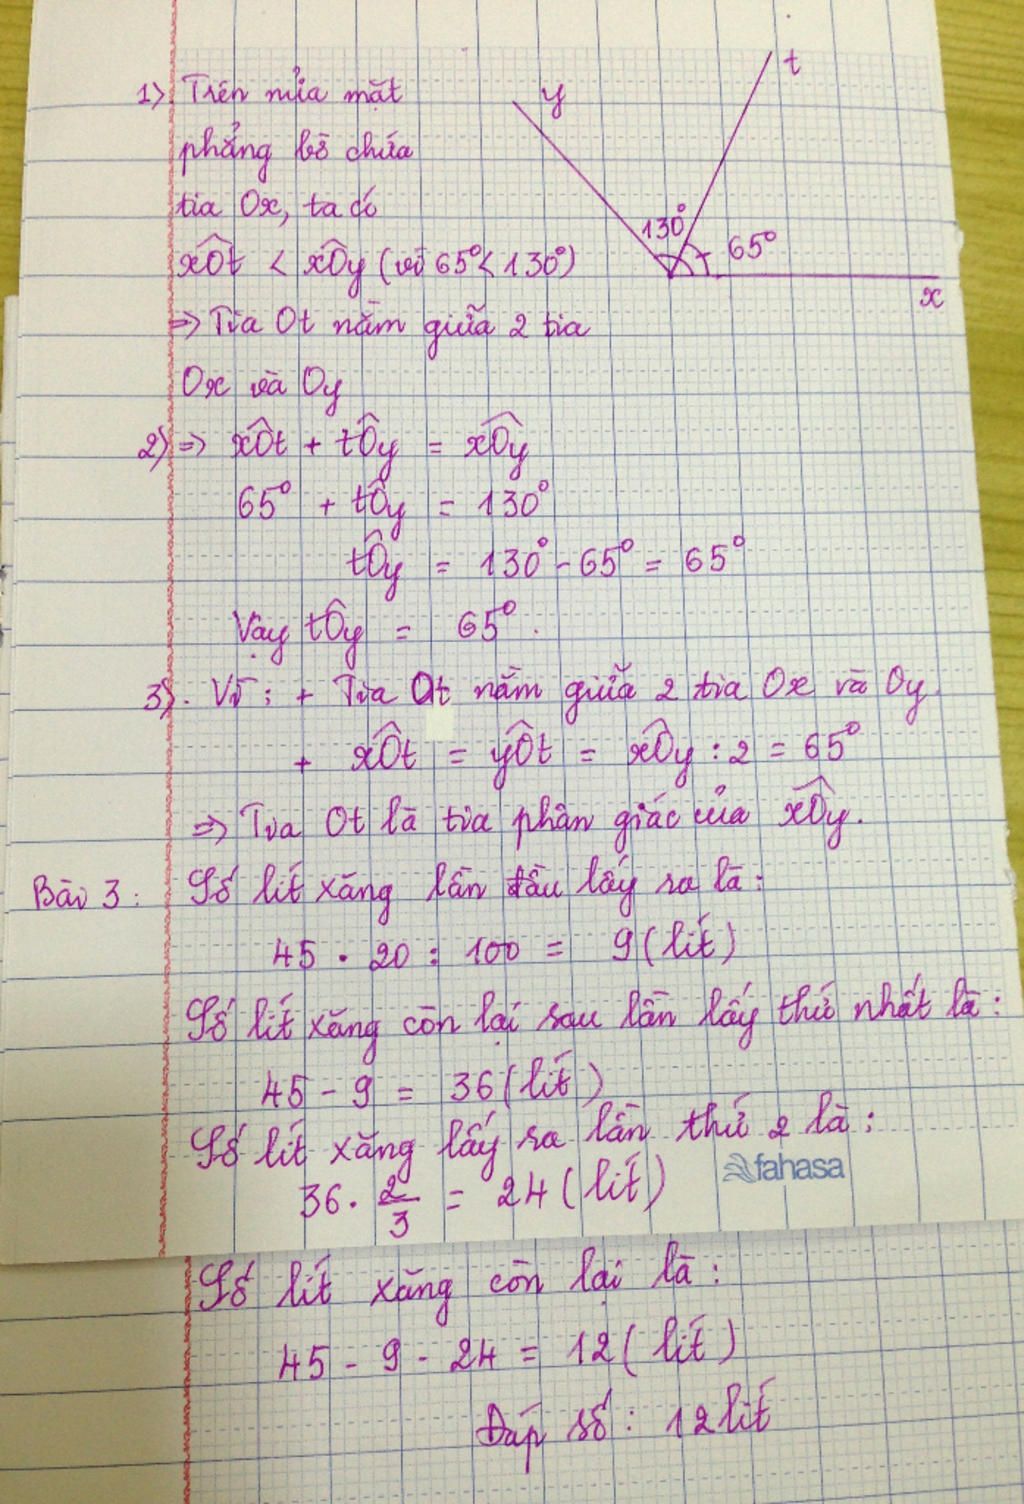 1) Trên nửa mặt
phẳng bờ chứa
tia Ox, ta có
xÔt < xÔy (vì 65° < 130°)
=> Tia Ot nằm giữa 2 tia
Ox và Oy
y
t
130°
65°
x
2) => xÔt + tÔy = xÔy
65° + tÔy = 130°
tÔy = 130° - 65° = 65°
Vậy tÔy = 65°.
3). Vì: + Tia Ot nằm giữa 2 tia Ox và Oy.
+ xÔt = yÔt = xÔy : 2 = 65°
=> Tia Ot là tia phân giác của xÔy.
Bài 3: Số lít xăng lần đầu lấy ra là:
45 . 20 : 100 = 9 (lít)
Số lít xăng còn lại sau lần lấy thứ nhất là:
45 - 9 = 36 (lít)
Số lít xăng lấy ra lần thứ 2 là:
36 . 2/3 = 24 (lít)
fahasa
Số lít xăng còn lại là:
45 - 9 - 24 = 12 (lít)
Đáp số: 12 lít